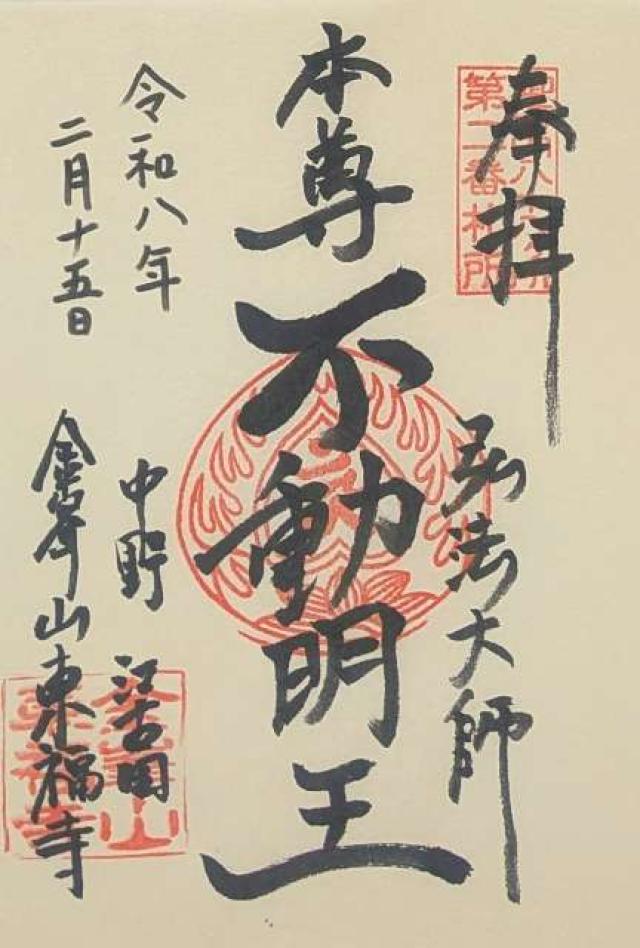 奉拝
第二番札所
弘法大師
本尊
不動明王
令和八年
二月十五日
中野
江古田
金峯山東福寺